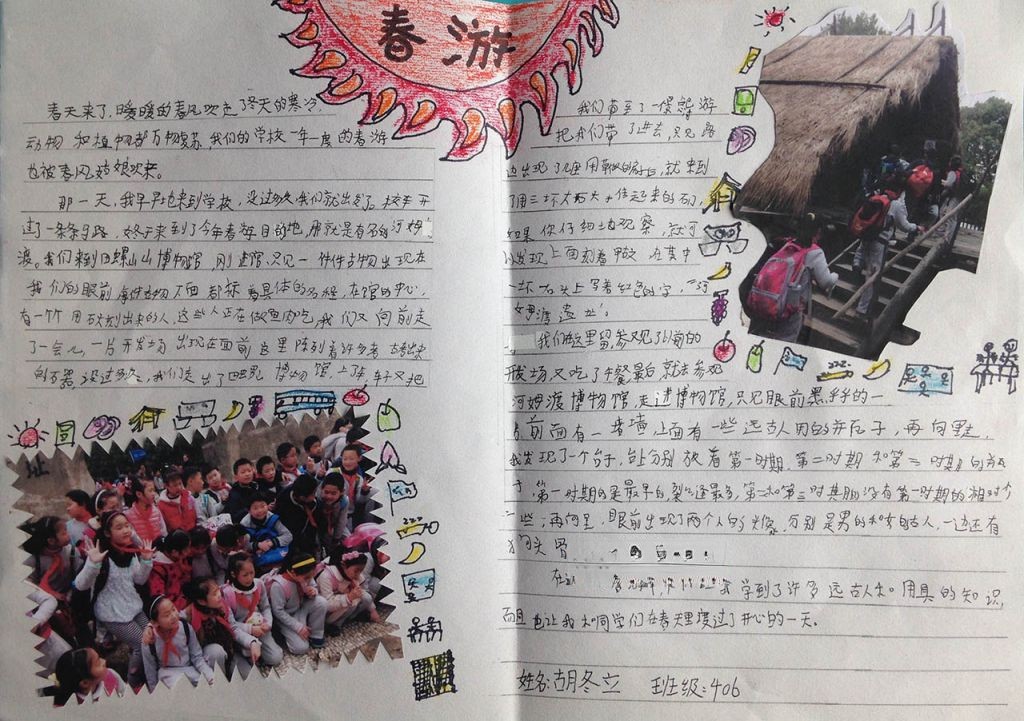 春游
春天来了,暖暖的春风吹走了冬天的寒冷,
动物和植物都万物复苏,我们的学校一年一度的春游
也被春风姑娘吹来。
那一天,我早早地来到学校,没过多久我们就出发了。校车开
过了一条条马路,终于来到了今年春游目的地,那就是有名的河姆
渡。我们来到田螺山博物馆,刚进馆,只见一件件古物出现在
我们的眼前,每件古物下面都标着具体的名称,在馆的中心,
有一个个用石头刻出来的人,这些人正在做鱼肉吃,我们又向前走
了一会儿,一片开发场出现在面前,这里陈列着许多考古出来
的石器,没过多久,我们走出了田螺山博物馆,上车,车子又把
我们带到了一
把我们带了进去,只见路
边出现了几座用草做的房子,就来到
了用三坏大石头住起来的石门,
如果你仔细地观察,就可
以发现,上面刻着甲文,在其中
一坏石头上写着红色的字,“河
姆渡遗址”
我们在这里留影参观了以前的
开发场又吃了午餐最后就去参观
河姆渡博物馆,走进博物馆,只见眼前黑乎乎的一
前面有一堵墙,上面有一些远古人用的瓶子,再向里走,
我发现了一个台子,台上分别放着第一时期、第二时期和第三时期的
第一时期的是最早的,裂缝最多,第二和第三时期没有第一时期的相对
一些;再向里,眼前出现了两个人的头像,分别是男的和女的古人,一边还有
狗头骨
学到了许多远古人和用具的知识,
而且也让我和同学们在春天里度过了开心的一天。
姓名:胡冬立 班级:406